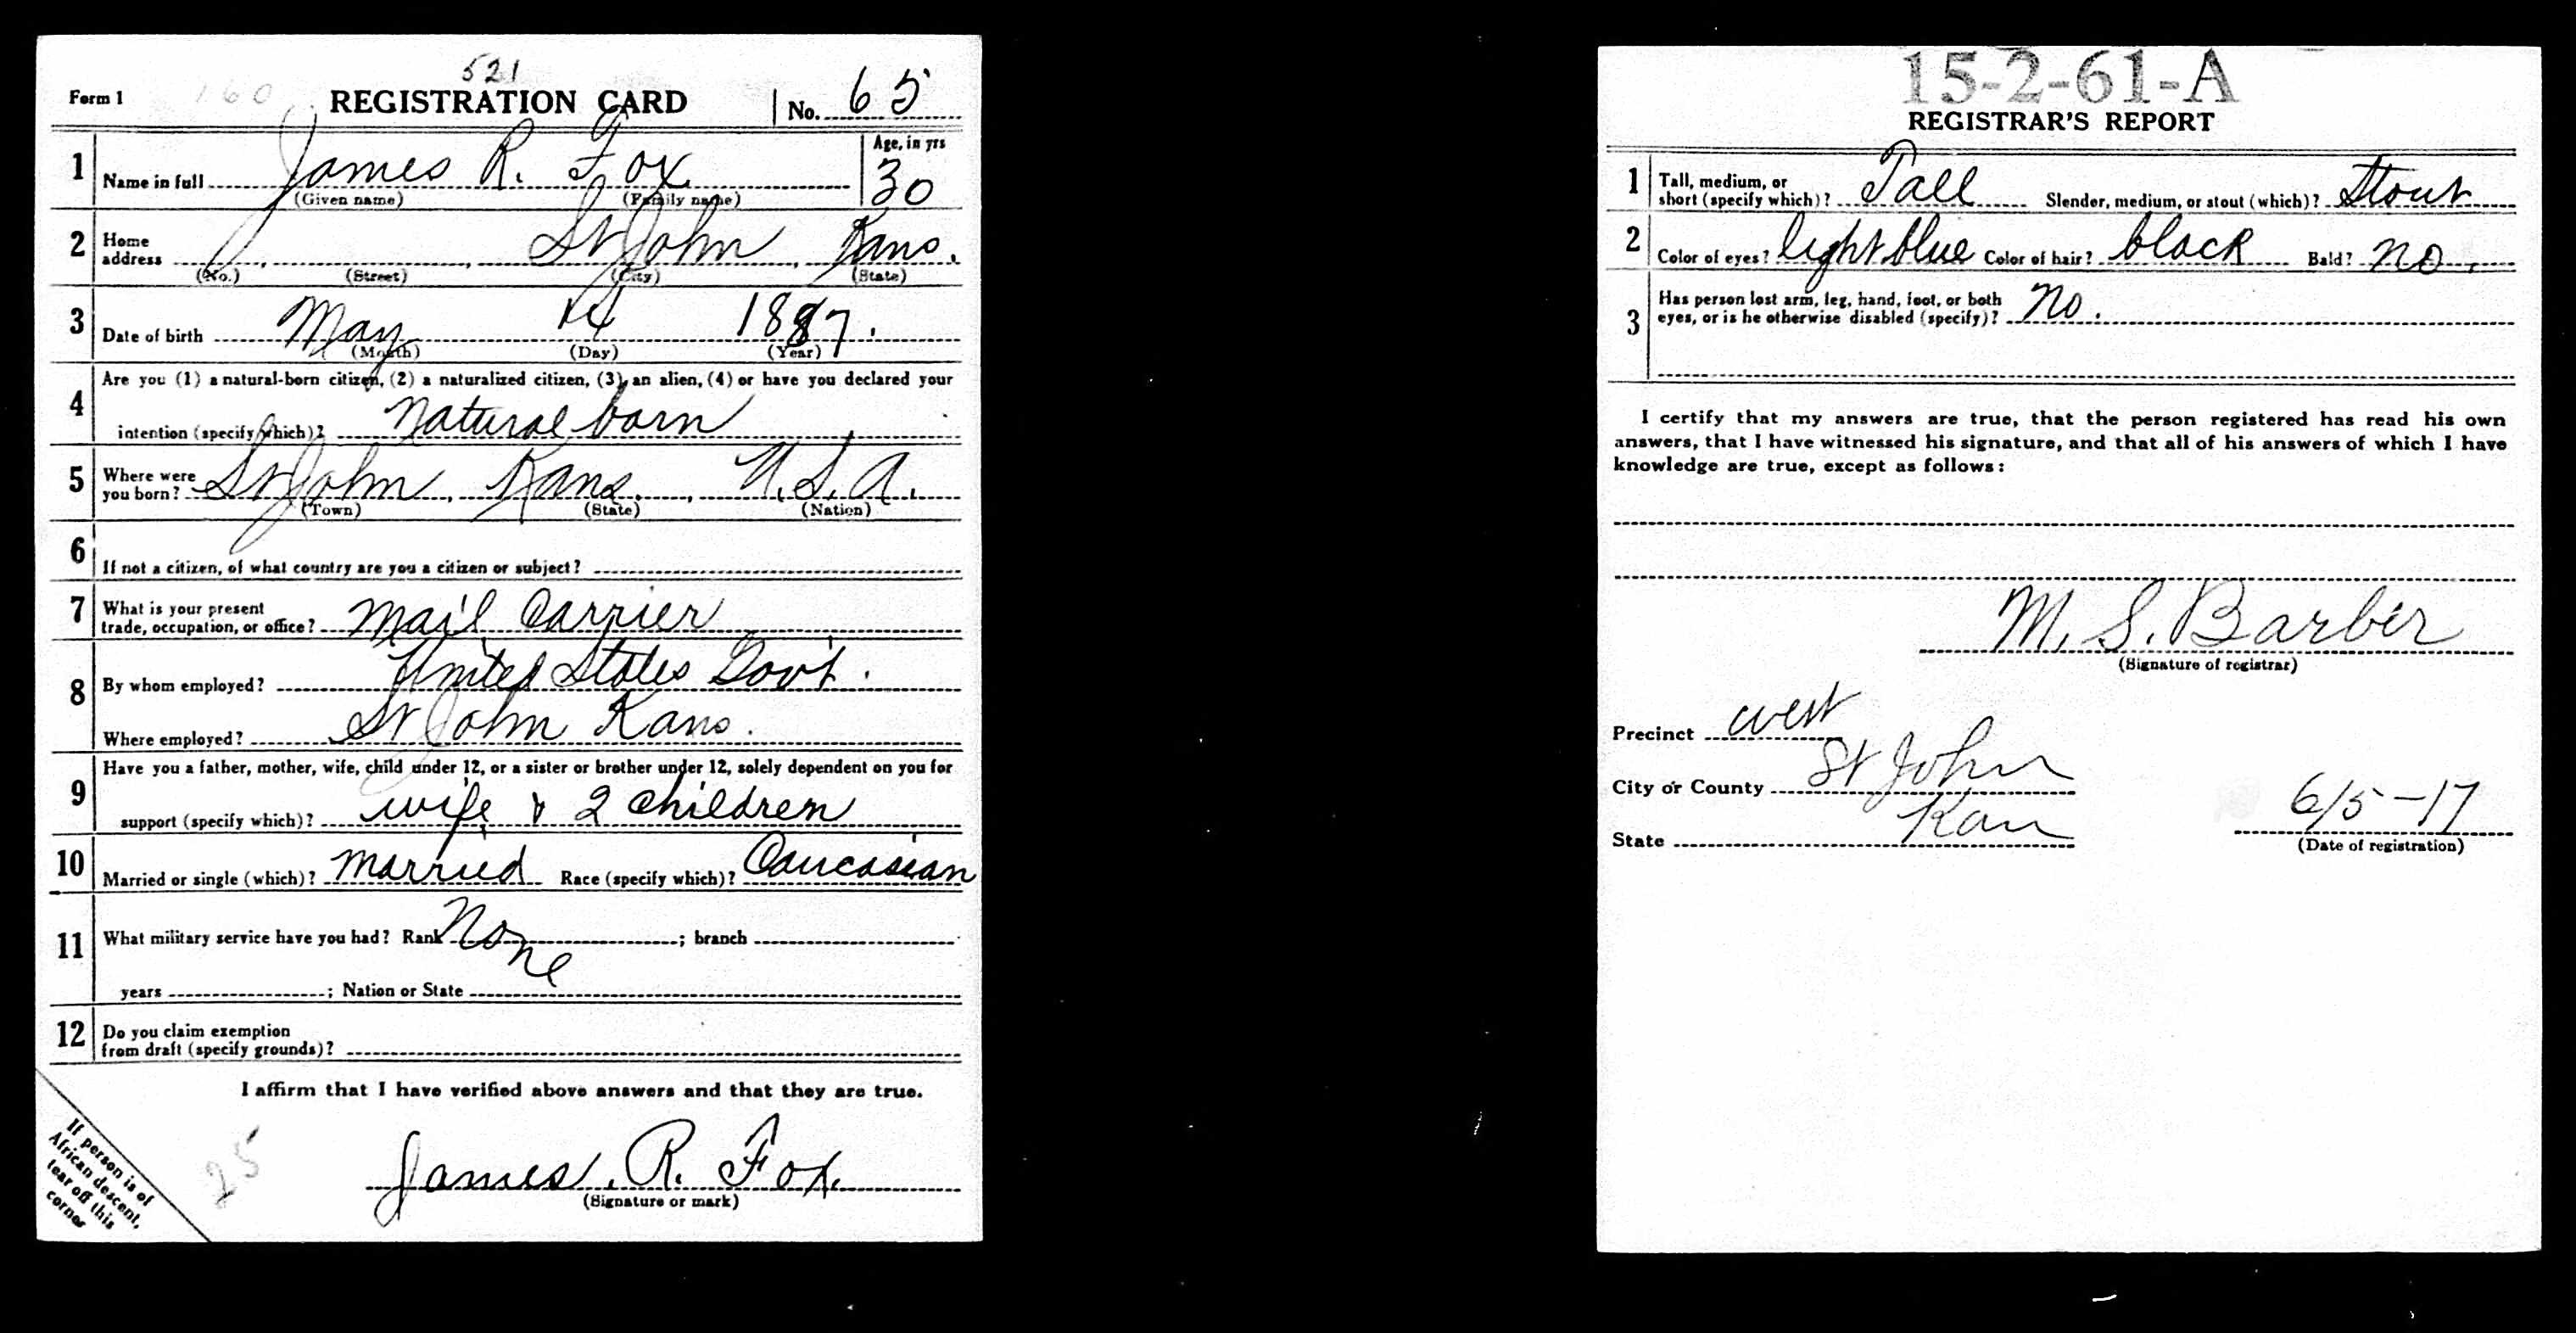 521
Form 1 160 REGISTRATION CARD No. 65
1 Name in full James R. Fox Age, in yrs 30
(Given name) (Family name)
2 Home address St John, Kans.
(No.) (Street) (City) (State)
3 Date of birth May 14 1887.
(Month) (Day) (Year)
4 Are you (1) a natural-born citizen, (2) a naturalized citizen, (3) an alien, (4) or have you declared your
intention (specify which)? Natural born
5 Where were you born? St John, Kans., U.S.A.
(Town) (State) (Nation)
6 If not a citizen, of what country are you a citizen or subject?
7 What is your present
trade, occupation, or office? Mail Carrier
8 By whom employed? United States Govt.
Where employed? St John Kans.
9 Have you a father, mother, wife, child under 12, or a sister or brother under 12, solely dependent on you for
support (specify which)? wife & 2 children
10 Married or single (which)? Married Race (specify which)? Caucasian
11 What military service have you had? Rank None ; branch
years ; Nation or State
12 Do you claim exemption
from draft (specify grounds)?
I affirm that I have verified above answers and that they are true.
25
James. R. Fox.
(Signature or mark)
If person is of
African descent,
tear off this
corner
15-2-61-A
REGISTRAR'S REPORT
1 Tall, medium, or
short (specify which)? Tall Slender, medium, or stout (which)? Stout
2 Color of eyes? light blue Color of hair? black Bald? No.
3 Has person lost arm, leg, hand, foot, or both
eyes, or is he otherwise disabled (specify)? No.
I certify that my answers are true, that the person registered has read his own
answers, that I have witnessed his signature, and that all of his answers of which I have
knowledge are true, except as follows:
M. S. Barber
(Signature of registrar)
Precinct West
City or County St John
State Kan 6/5-17
(Date of registration)